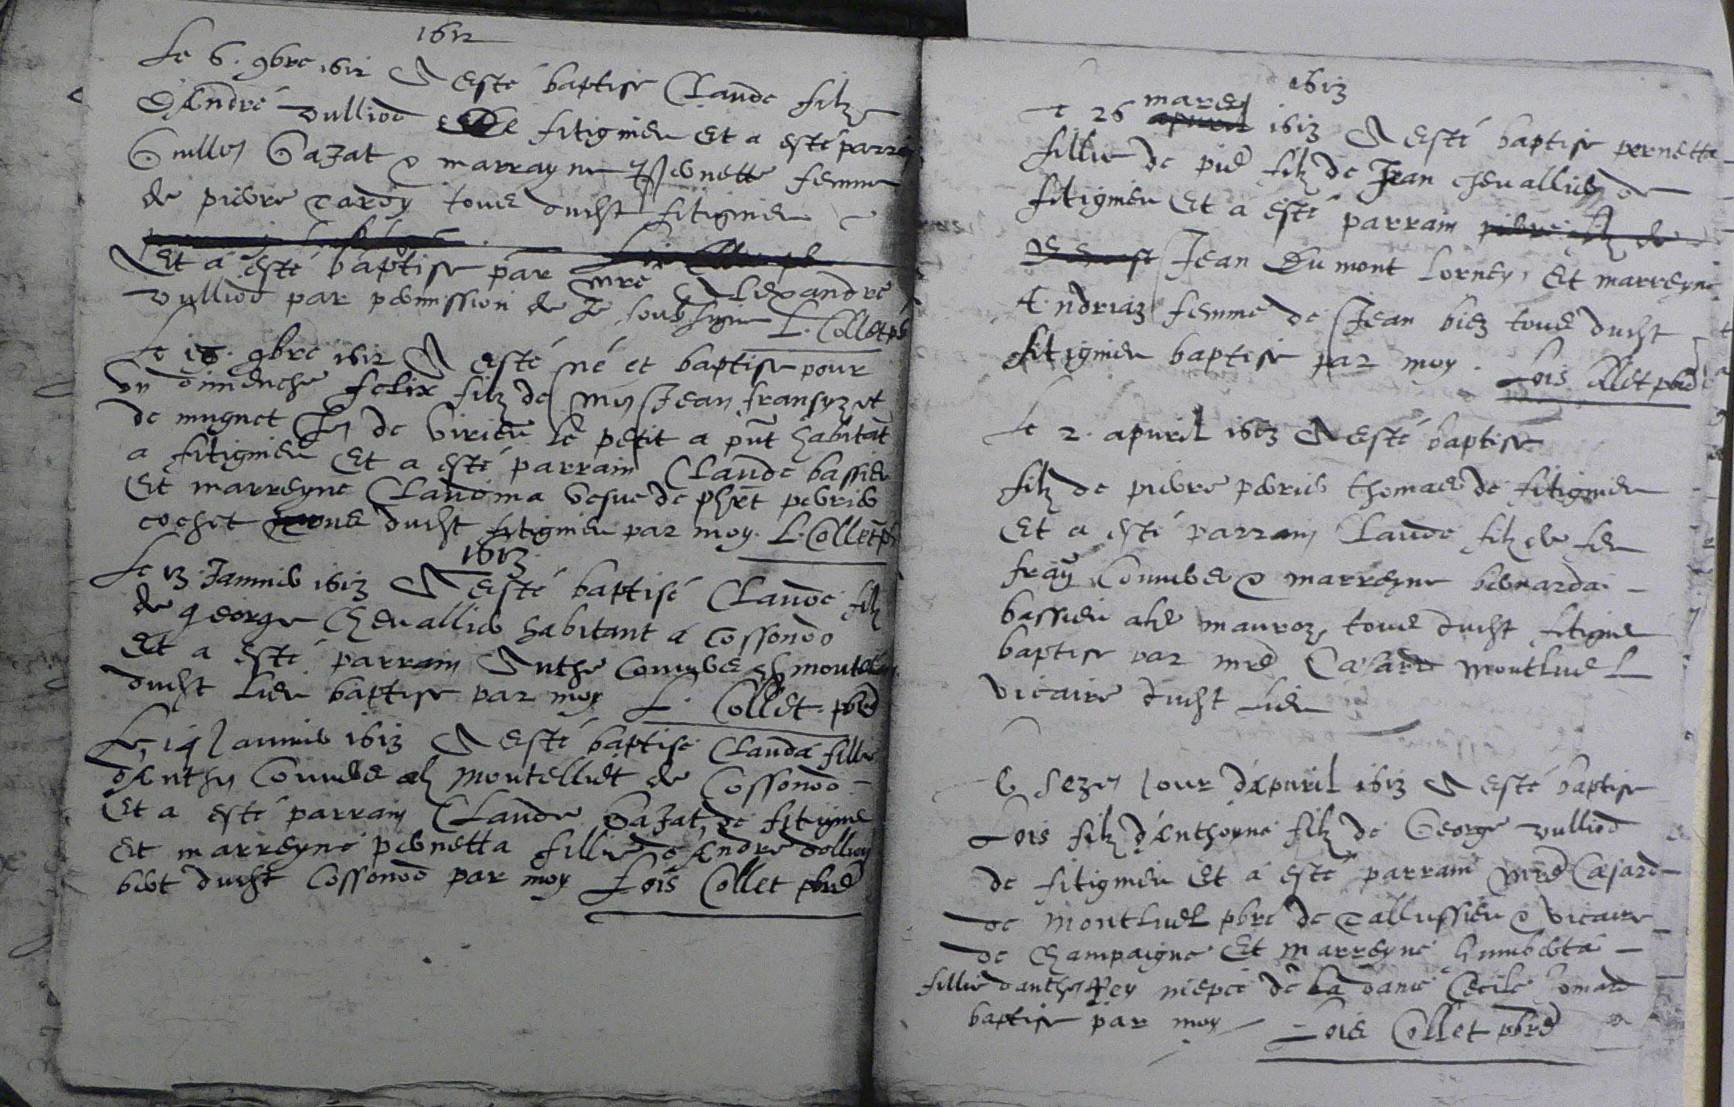 1612
Le 6. 9bre 1612 A esté baptise Claude filz
d'André vulliod de fitignieu Et a esté parrein
Guillen Gajat & marrayne pernette femme
de pierre tardy tous dudit fitignieu
Et a esté baptise par mre Alexandre
vulliod par permission de Je soubsigne L. Collet pb
Le 18. 9bre 1612 A esté né et baptise pour
un dimenche felix filz de Mr Jean fransyzet
de mugnet de Virieu le petit a pnt habitat
a fitignieu Et a esté parrain Claude bassieu
Et marreyne Claudina vesve de phrt perrier
cochet tous dudit fitignieu par moy. L. Collet pb
1613
Le 13 Janvier 1613 A esté baptisé Claude filz
de George Chevallier habitant a Cossonod
Et a esté parrain Anthe Comubes montel
dudit lieu baptise par moy L. Collet. pbre
Le 14 Janvier 1613 A esté baptisé Clauda fillie
d'Anthe Comubes alz montelliet de Cossonod
Et a esté parrain Claude Gajat de fitignieu
Et marreyne pernetta fillie d'Andre dolliey
biot dudit Cossonod par moy Lois Collet pbre
1613
mars
Le 26 apvril 1613 A esté baptise pernetta
fillie de pier filz de Jean chevallier de
fitignieu Et a esté parrain pierre filz de
Jean Dumont Lorney, Et marreyne
Andriaz femme de Jean biez tous dudit
fitignieu baptise par moy. Lois Collet pbre
Le 2. apuril 1613 A esté baptise
filz de pierre perrier thomas de fitignieu
Et a esté parrain Claude filz de feu
Comubes & marreyne bernarda
bassieu alz mauroz, tous dudit fitignieu
baptise par mre Casard montluel
vicaire dudit Lieu
Le sezen Jour d'Apuril 1613 A esté baptise
Lois filz d'Anthoyne filz de George vulliod
de fitignieu Et a esté parrain mre Casard
de Montluel pbre de Tallussieu & vicaire
de Champaigne Et marreyne humberta
fillie d'anthe Rey niepce de la dame Cecile
baptise par moy Lois Collet pbre